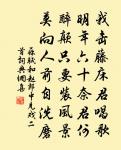 我击藤床君唱歌
明年六十奈君何
醉颠只要装风景
莫向人前自洗磨
苏轼和赵郎中见戏二
首词典网喜